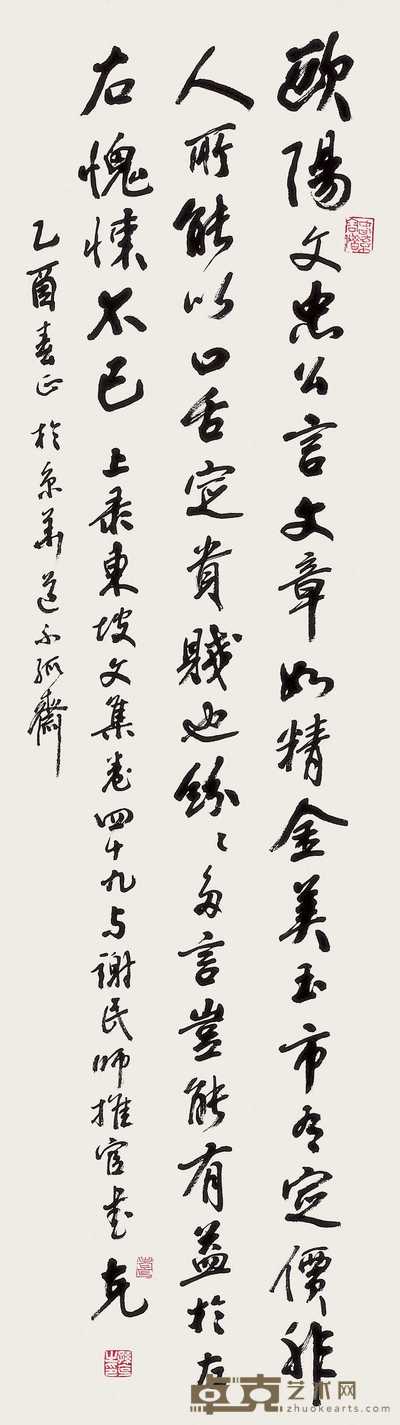 歐陽文忠公言文章如精金美玉市有定價非
人所能以口舌定貴賤也紛紛多言豈能有益於左
右愧悚不已 上录東坡文集卷四十九与謝民師推官書 克
乙酉春正於京華道不孤齋
卓克艺术网
zhuokearts.com